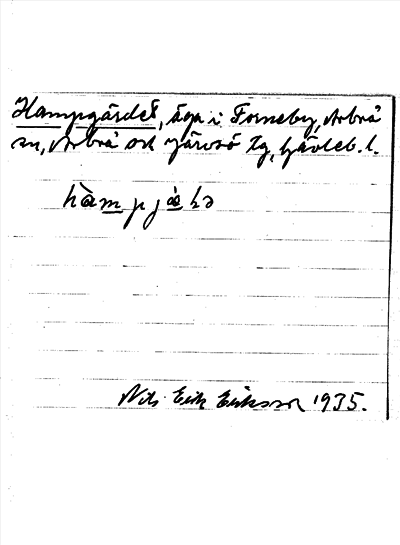 Hampgärdet, äga i Forneby, Arbrå
sn, Arbrå och Järvsö tg, Gävleb. l.
hàmpjæ̀ḷə
Nils Erik Eriksson 1935.